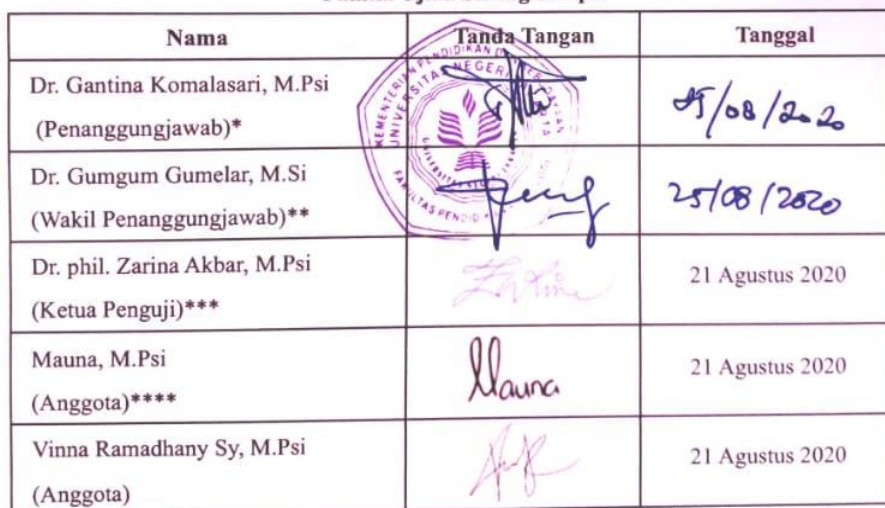 Nama Tanda Tangan Tanggal
Dr. Gantina Komalasari, M.Psi
(Penanggungjawab)*
25/08/2020
Dr. Gumgum Gumelar, M.Si
(Wakil Penanggungjawab)**
25/08/2020
KEMENTERIAN PENDIDIKAN DAN KEBUDAYAAN
UNIVERSITAS NEGERI
Dr. phil. Zarina Akbar, M.Psi
(Ketua Penguji)***
21 Agustus 2020
Mauna, M.Psi
(Anggota)****
Mauna
21 Agustus 2020
Vinna Ramadhany Sy, M.Psi
(Anggota)
21 Agustus 2020